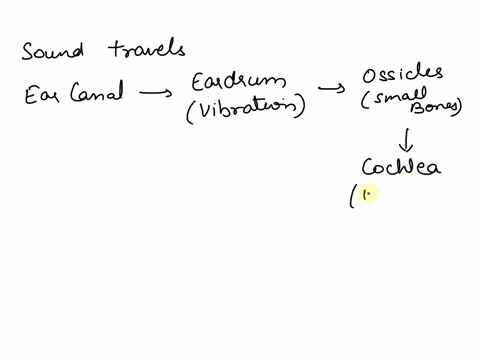 Sound travels
Ear Canal → Eardrum → Ossicles
(Vibration) (small Bones)
↓
Cochlea
(